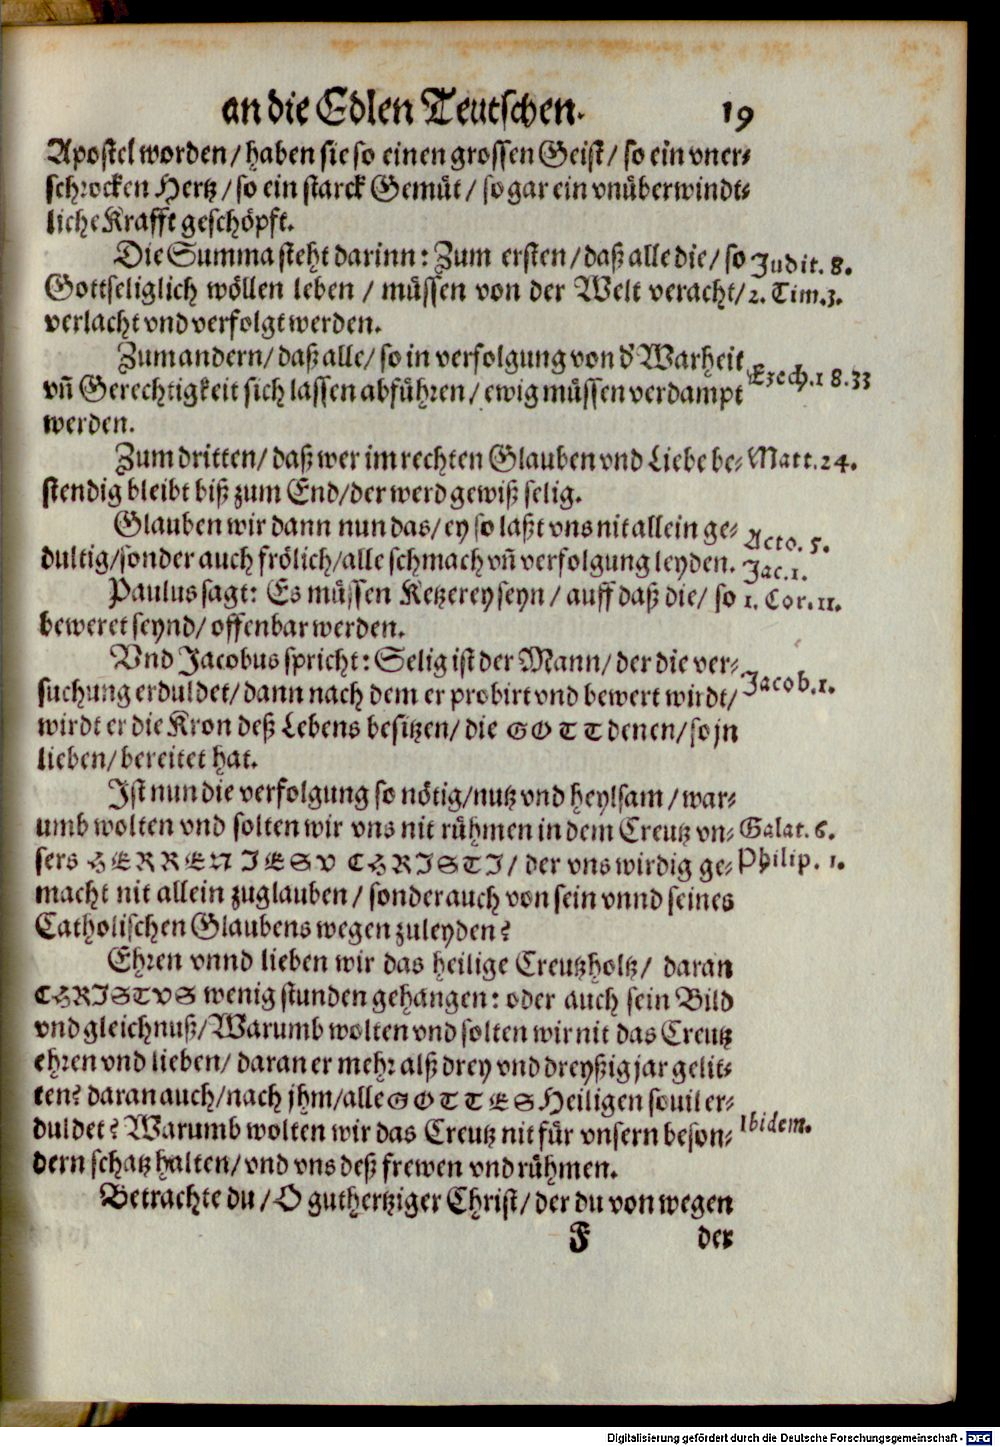 an die Edlen Teutschen. 19
Apostel worden/ haben sie so einen grossen Geist/ so ein vner-
schrocken Hertz/ so ein starck Gemüt/ so gar ein vnüberwindt-
liche Krafft geschöpft.
Die Summa steht darinn: Zum ersten/ daß alle die/ so Judit. 8.
Gottseliglich wöllen leben/ müssen von der Welt veracht/ 2. Tim. 3.
verlacht vnd verfolgt werden.
Zum andern/ daß alle/ so in verfolgung von d' Warheit
vñ Gerechtigkeit sich lassen abführen/ ewig müssen verdampt Ezech. 18. 33
werden.
Zum dritten/ daß wer im rechten Glauben vnd Liebe be- Matt. 24.
stendig bleibt biß zum End/ der werd gewiß selig.
Glauben wir dann nun das/ ey so laßt vns nit allein ge- Acto. 5.
dultig/ sonder auch frölich/ alle schmach vñ verfolgung leyden. Jac. 1.
Paulus sagt: Es müssen Ketzerey seyn/ auff daß die/ so 1. Cor. 11.
beweret seynd/ offenbar werden.
Vnd Jacobus spricht: Selig ist der Mann/ der die ver-
suchung erduldet/ dann nach dem er probirt vnd bewert wirdt/ Jacob. 1.
wirdt er die Kron deß Lebens besitzen/ die GOTT denen/ so jn
lieben/ bereitet hat.
Ist nun die verfolgung so nötig/ nutz vnd heylsam/ war-
umb wolten vnd solten wir vns nit rühmen in dem Creutz vn- Galat. 6.
sers HERREN JESV CHRISTI/ der vns wirdig ge- Philip. 1.
macht nit allein zuglauben/ sonder auch von sein vnnd seines
Catholischen Glaubens wegen zuleyden?
Ehren vnnd lieben wir das heilige Creutzholtz/ daran
CHRISTVS wenig stunden gehangen: oder auch sein Bild
vnd gleichnuß/ Warumb wolten vnd solten wir nit das Creutz
ehren vnd lieben/ daran er mehr alß drey vnd dreyßig jar gelit-
ten? daran auch/ nach jhm/ alle GOTTES Heiligen souil er-
duldet? Warumb wolten wir das Creutz nit für vnsern beson- Ibidem.
dern schatz halten/ vnd vns deß frewen vnd rühmen.
Betrachte du/ O guthertziger Christ/ der du von wegen
F der
Digitalisierung gefördert durch die Deutsche Forschungsgemeinschaft - DFG